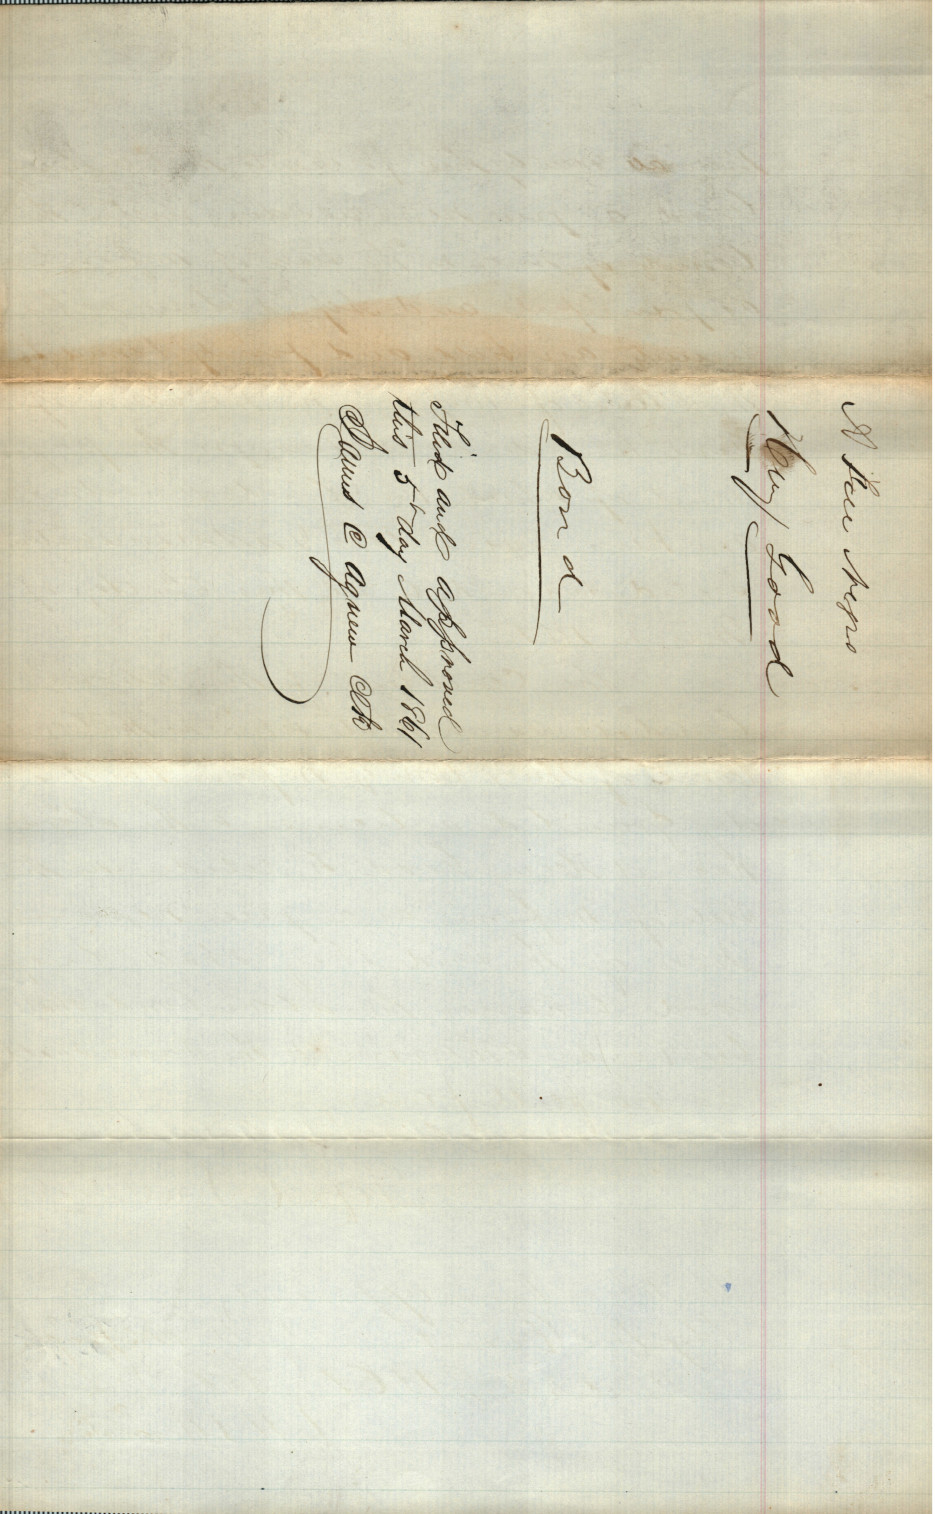 A Free Negro
Henry Good
Bond
Filed and approved
this 5th day March 1861
James C Agnew Clk